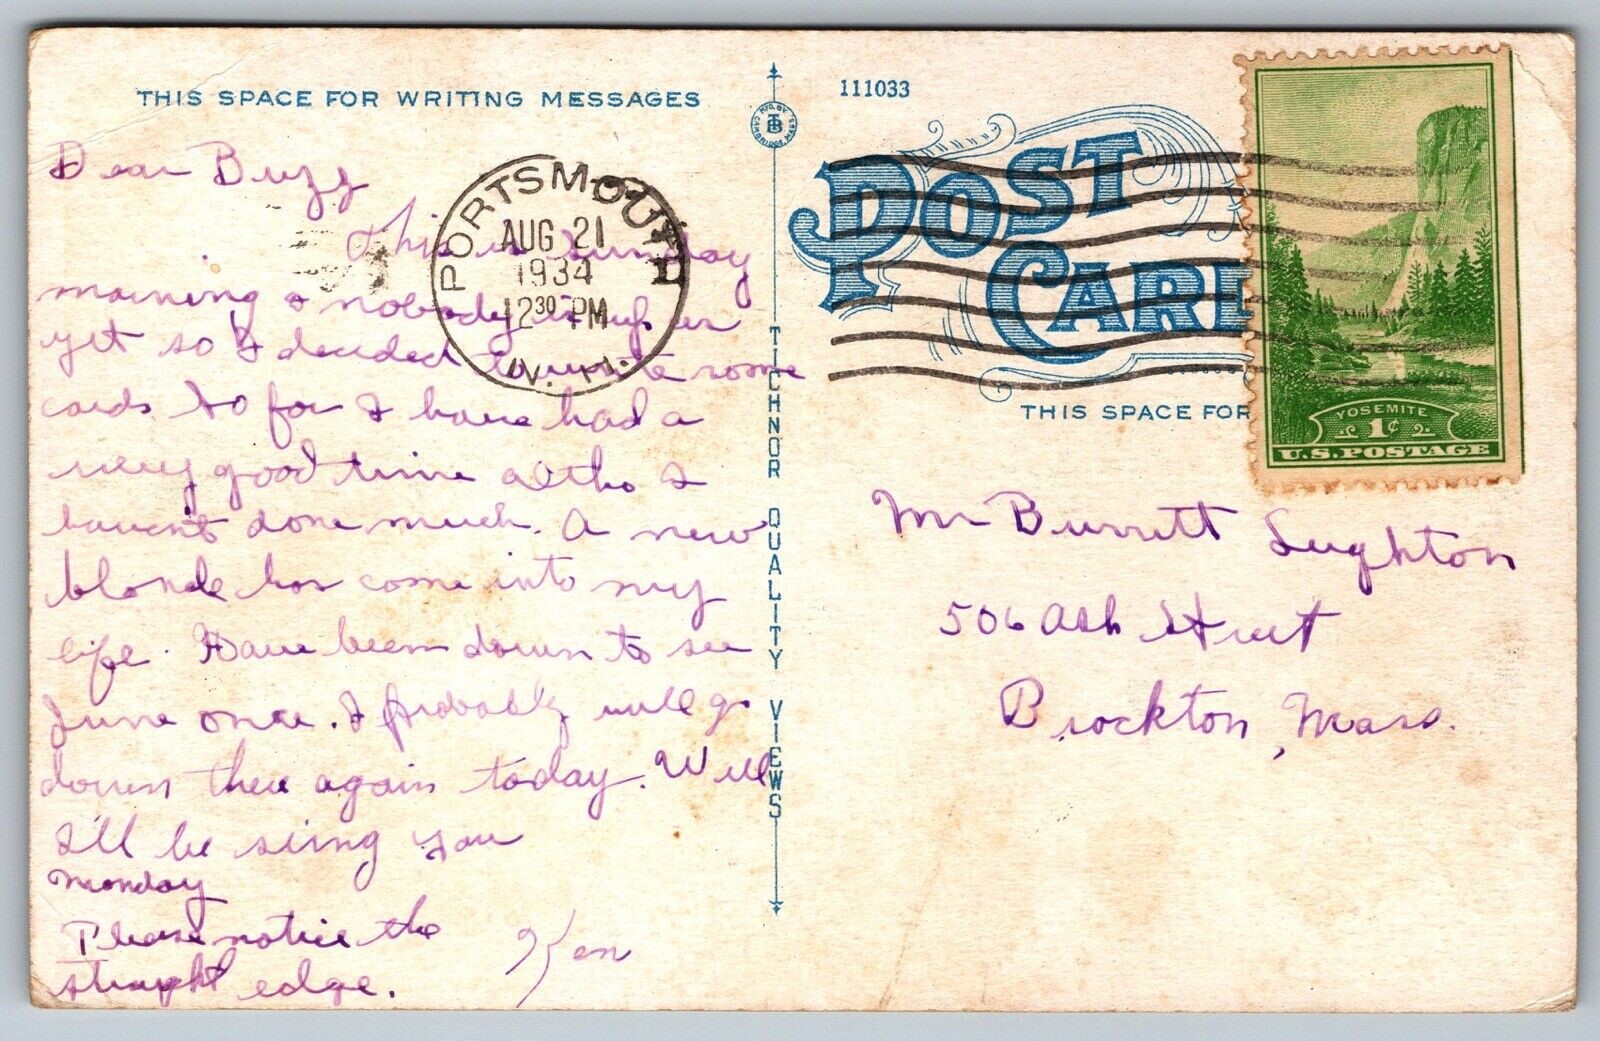 THIS SPACE FOR WRITING MESSAGES
Dear Buzz
This is Sunday
morning & nobody is up us
yet so I decided to write some
cards So far I have had a
very good time altho I
haven't done much. A new
blonde has come into my
life. Have been down to see
June once. I probably will go
down there again today. Well
I'll be seing you
Monday
Please notice the
straight edge.
Ken
PORTSMOUTH
AUG 21
1934
12 30 PM
N. H.
1
MFG. BY
TB
CAMBRIDGE, MASS.
TICHNOR QUALITY VIEWS
111033
POST
CARD
THIS SPACE FOR
YOSEMITE
1¢
U.S. POSTAGE
Mr Burrett Leighton
506 Ash Street
Brockton, Mass.